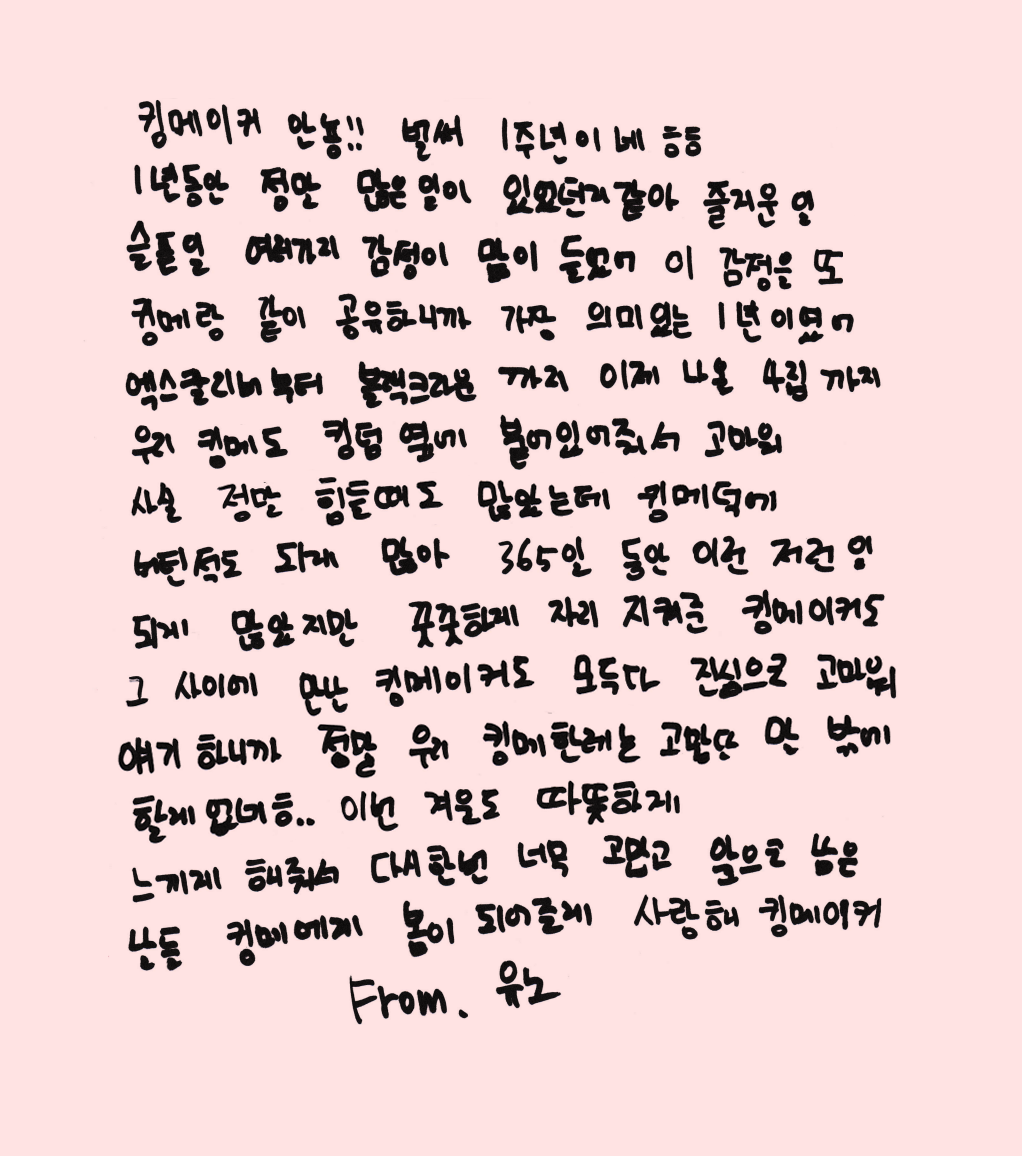 킹메이커 안뇽!! 벌써 1주년이네 흐흐
1년동안 정말 많은일이 있었던거같아 즐거운 일
슬픈일 여러가지 감정이 많이 들었어 이 감정을 또
킹메랑 같이 공유하니까 가장 의미있는 1년이였어
엑스칼리버 부터 블랙크라운 까지 이제 나올 4집 까지
우리 킹메도 킹덤 옆에 붙어있어줘서 고마워
사실 정말 힘들때도 많았는데 킹메덕에
버틴적도 되게 많아 365일 동안 이런 저런 일
되게 많았지만 꿋꿋하게 자리 지켜준 킹메이커도
그 사이에 만난 킹메이커도 모두다 진심으로 고마워
얘기 하니까 정말 우리 킹메한테는 고맙단 말 밖에
할게 없네 흐.. 이번 겨울도 따뜻하게
느끼게 해줘서 다시한번 너무 고맙고 앞으로 남은
날들 킹메에게 봄이 되어줄게 사랑해 킹메이커
From. 유노